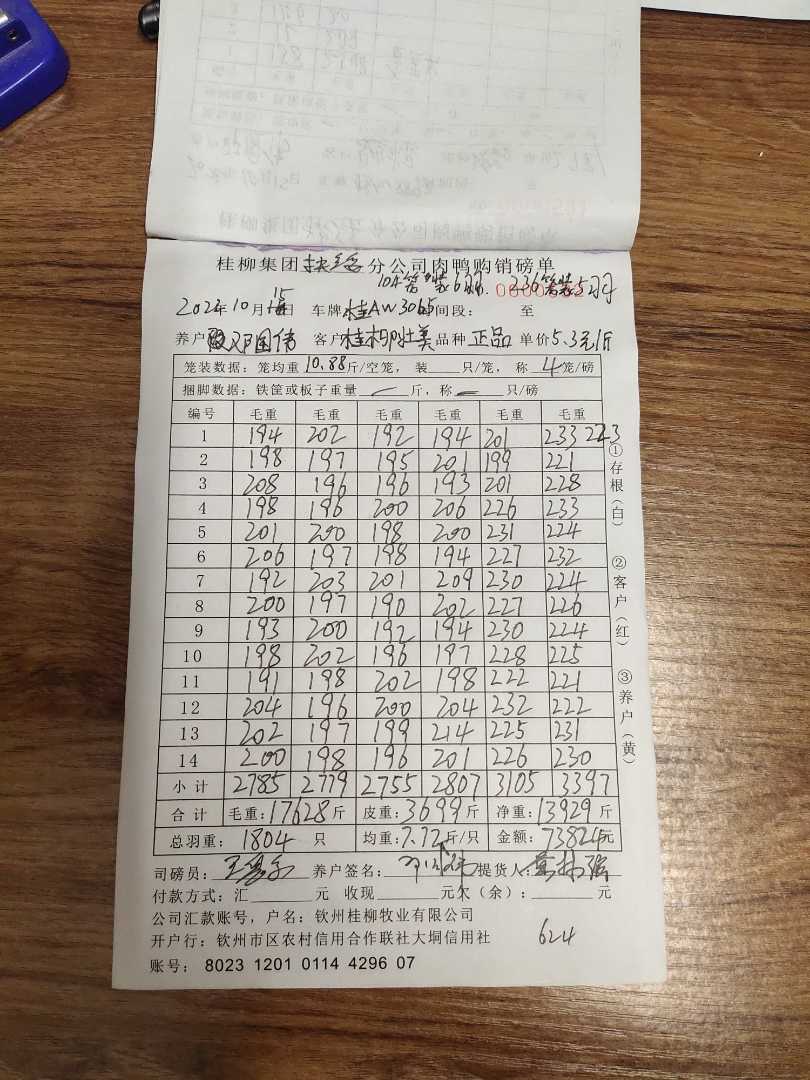 桂柳集团扶绥分公司肉鸭购销磅单
104笼装6羽 236笼装5羽
2023年10月15日 车牌桂AW3065时间段: 至
养户邓国伟 客户桂柳壮美品种正品 单价5.3元/斤
笼装数据:笼均重10.88斤/空笼,装 只/笼,称4笼/磅
捆脚数据:铁筐或板子重量 斤,称 只/磅
编号 毛重 毛重 毛重 毛重 毛重 毛重
1 194 202 192 194 201 233 223
2 198 197 195 201 199 221
3 208 196 196 193 201 228
4 198 196 200 206 226 233
5 201 200 198 200 231 224
6 206 197 198 194 227 232
7 192 203 201 209 230 224
8 200 197 190 202 227 226
9 193 200 192 194 230 224
10 198 202 196 197 228 225
11 191 198 202 198 222 221
12 204 196 200 204 232 222
13 202 197 199 214 225 231
14 200 198 196 201 226 230
小计 2785 2779 2755 2807 3105 3397
合计 毛重:17628斤 皮重:3699斤 净重:13929斤
总羽重: 1804 只 均重:7.72斤/只 金额:73824元
司磅员: 养户签名: 提货人:
付款方式:汇 元 收现 元欠(余): 元
公司汇款账号,户名:钦州桂柳牧业有限公司
开户行:钦州市区农村信用合作联社大垌信用社 624
账号: 8023 1201 0114 4296 07
①存根(白) ②客户(红) ③养户(黄)